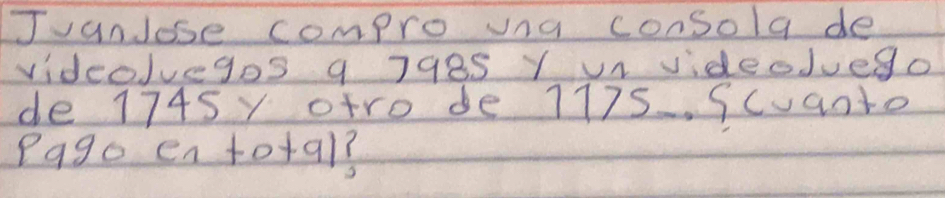 JuanJose compro una consola de
videoJuegos a 7985 y un videoJuego
de 1745 y otro de 1175... ¿cuanto
Pago en total?